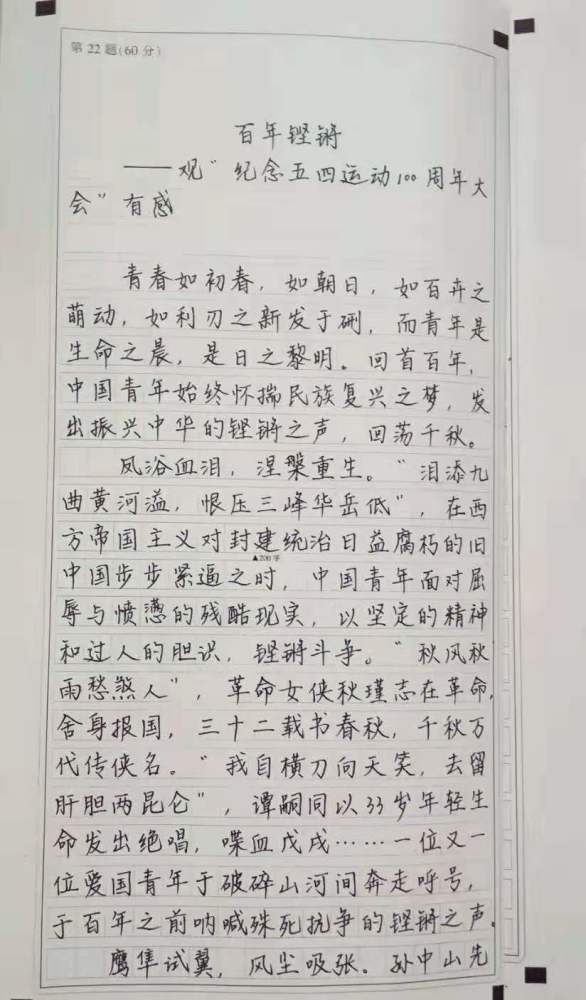 第22题(60分)
百年铿锵
——观“纪念五四运动100周年大
会”有感
青春如初春，如朝日，如百卉之
萌动，如利刃之新发于硎，而青年是
生命之晨，是日之黎明。回首百年，
中国青年始终怀揣民族复兴之梦，发
出振兴中华的铿锵之声，回荡千秋。
凤浴血泪，涅槃重生。“泪添九
曲黄河溢，恨压三峰华岳低”，在西
方帝国主义对封建统治日益腐朽的旧
▲200字
中国步步紧逼之时，中国青年面对屈
辱与愤懑的残酷现实，以坚定的精神
和过人的胆识，铿锵斗争。“秋风秋
雨愁煞人”，革命女侠秋瑾志在革命，
舍身报国，三十二载书春秋，千秋万
代传侠名。“我自横刀向天笑，去留
肝胆两昆仑”，谭嗣同以33岁年轻生
命发出绝唱，喋血戊戌……一位又一
位爱国青年于破碎山河间奔走呼号，
于百年之前呐喊殊死抗争的铿锵之声。
鹰隼试翼，风尘吸张。孙中山先